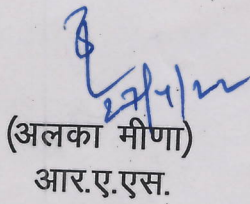 27/4/22
(अलका मीणा)
आर.ए.एस.